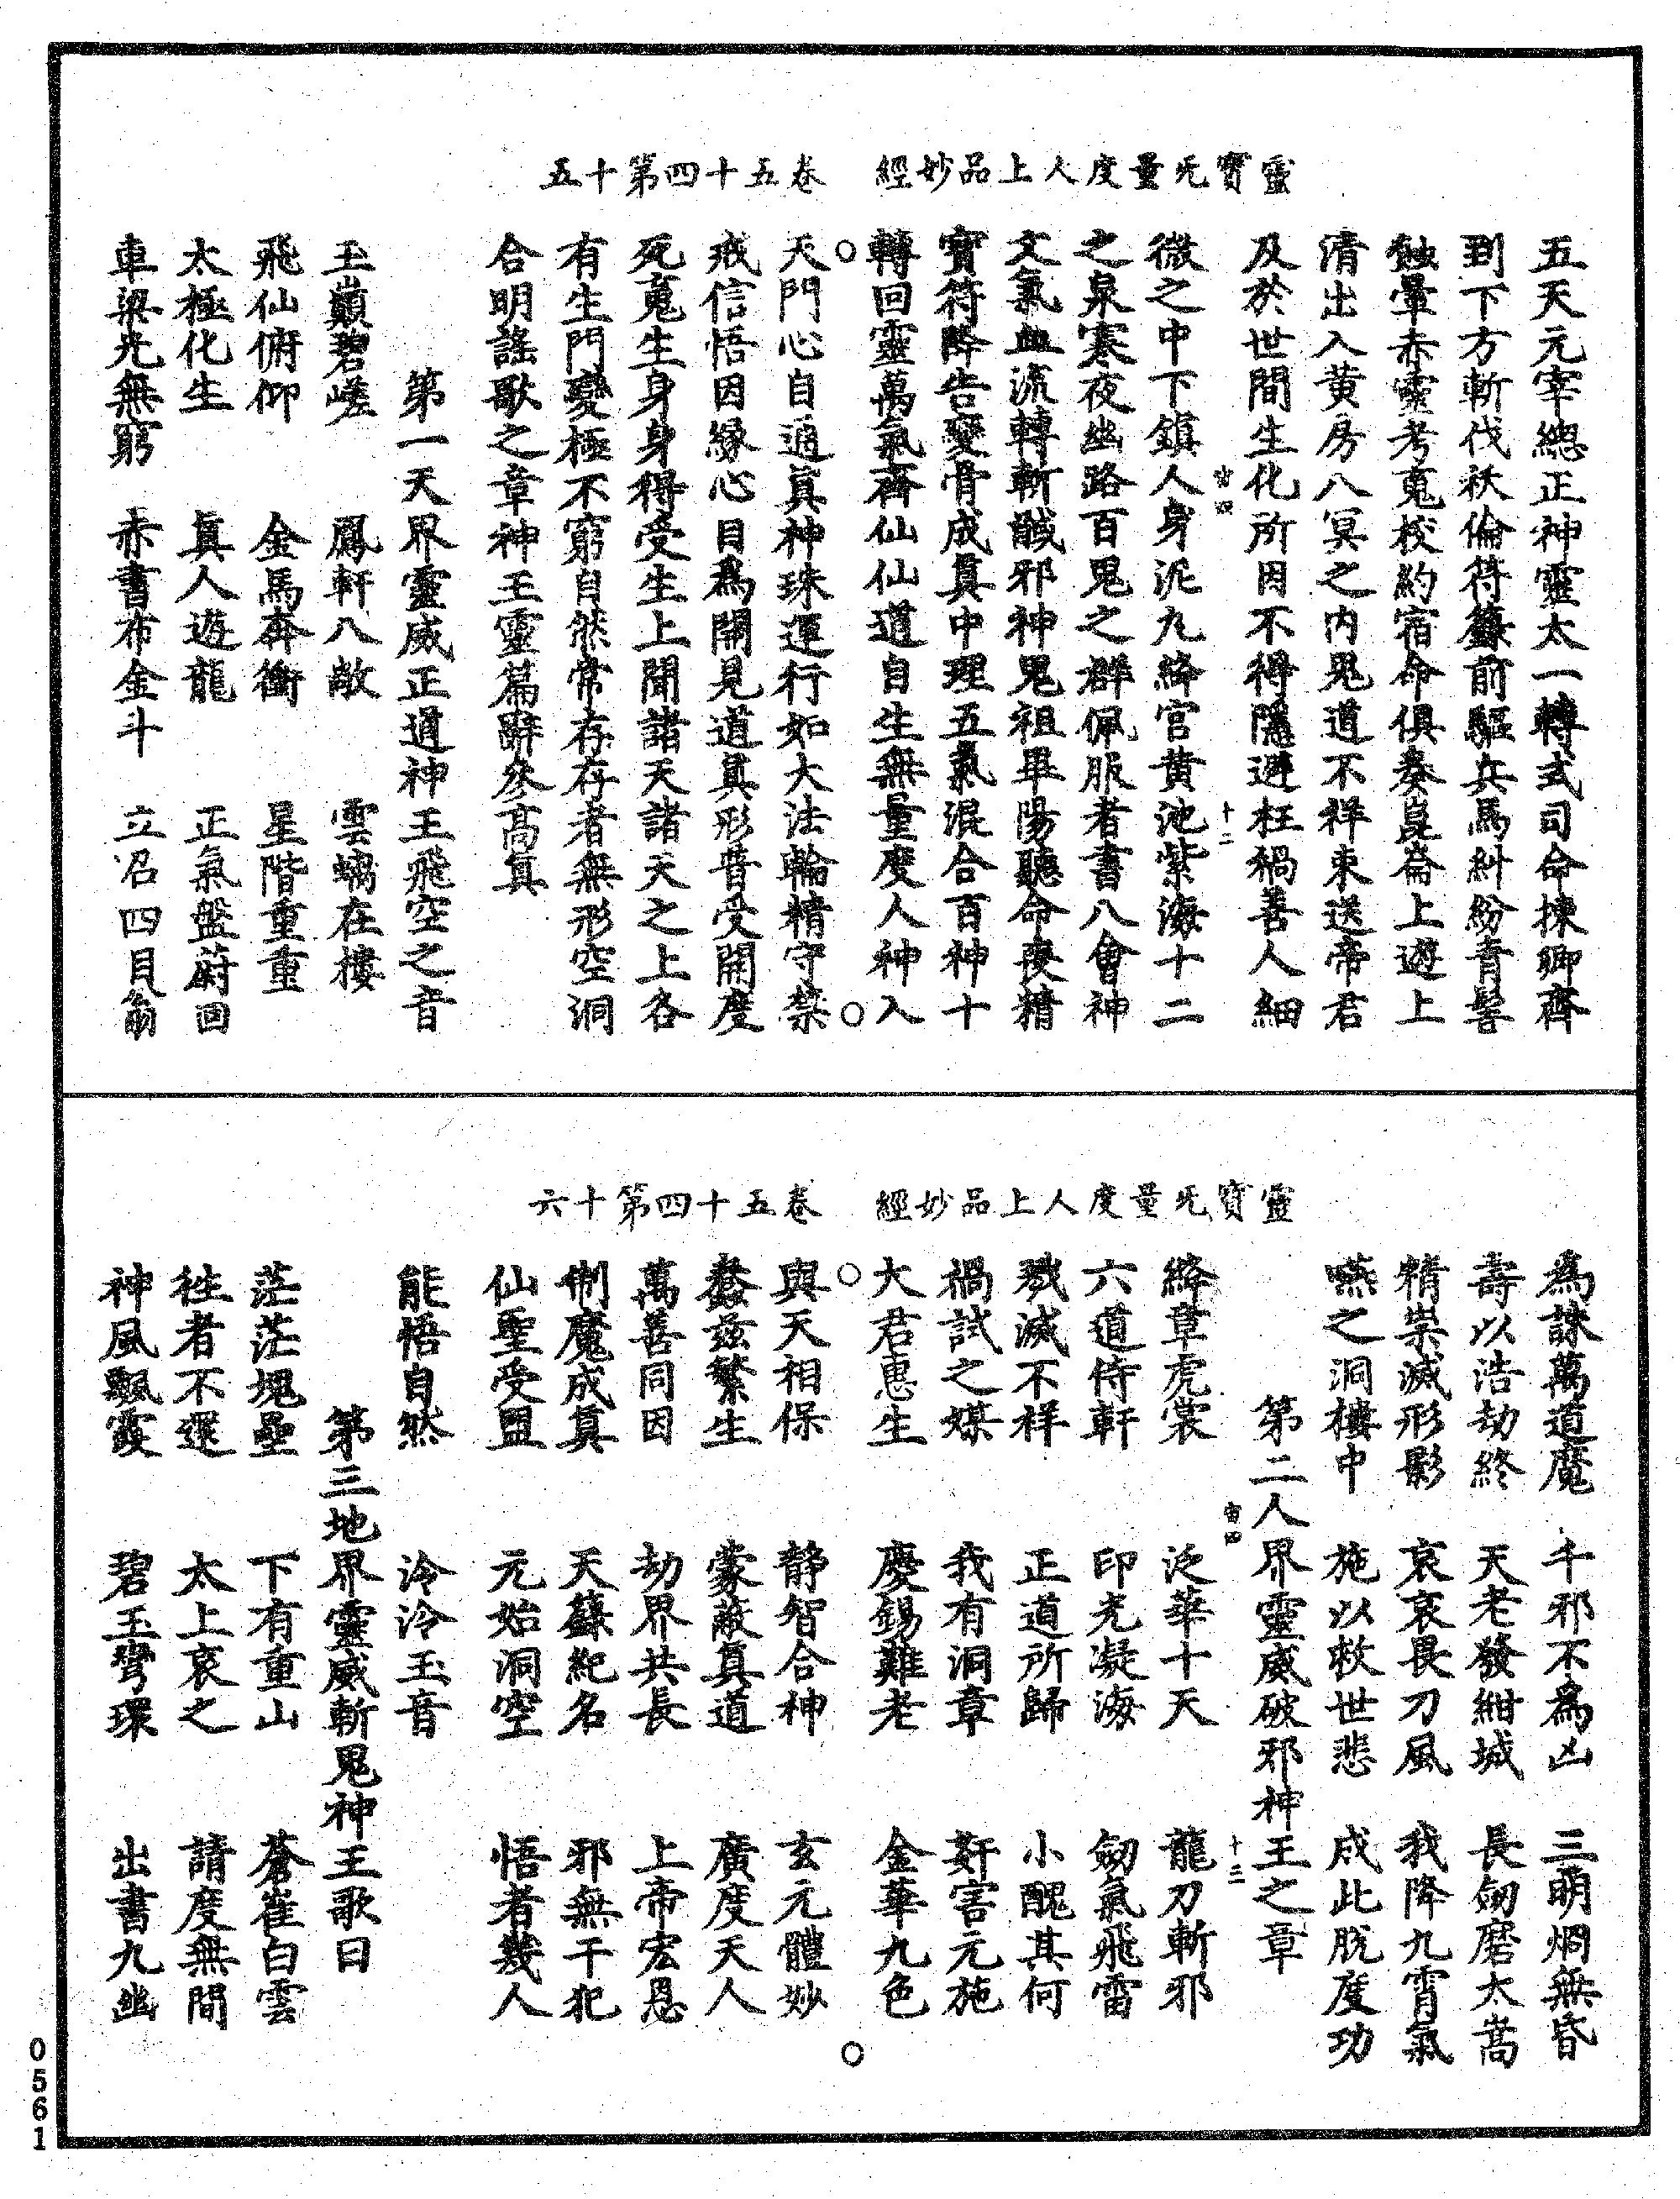 靈寶旡量度人上品妙經　卷五十四第十五
五天元宰總正神靈太一轉式司命揀卿齊
到下方斬伐祅倫符籙前驅兵馬糾紛青髻
蝕暈赤靈考䰟校約宿命俱奏崑崙上遊上
清出入黃房八冥之内鬼道不祥束送帝君
及於世間生化所因不得隱避枉禍善人細
宙四　十二
微之中下鎮人身泥九絳宮黃池紫海十二
之泉寒夜幽路百鬼之群佩服者書八會神
文氣血流轉斬馘邪神鬼祖畢陽聽命喪精
寶符降告變骨成眞中理五氣混合百神十
轉回靈萬氣齊仙仙道自生無量度人神入
天門心自通眞神珠運行如大法輪精守禁
戒信悟因緣心目爲開見道眞形普受開度
死䰟生身身得受生上聞諸天諸天之上各
有生門變極不窮自然常存存者無形空洞
合明謠歌之章神王靈篇辭參髙眞
第一天界靈威正道神王飛空之音
玉巔碧嵯　鳳軒八敞　雲螭在樓
飛仙俯仰　金馬奔衝　星階重重
太極化生　眞人遊龍　正氣盤蔚回
車梁光無窮　赤書布金斗　立召四貝翁
靈寶旡量度人上品妙經　卷五十四第十六
爲誅萬道魔　千邪不爲凶　三明烱無昏
壽以浩劫終　天老發紺城　長劒磨太嵩
精祟滅形影　哀哀畏刀風　我降九霄氣
嚥之洞樓中　施以救世悲　成此脫度功
第二人界靈威破邪神王之章
宙四　十三
絳章虎裳　泛華十天　龍刀斬邪
六道侍軒　印光凝海　劒氣飛雷
殘滅不祥　正道所歸　小醜其何
禍試之媒　我有洞章　姧害元施
大君惠生　慶錫難老　金華九色
與天相保　静智合神　玄元體妙
蠢兹繁生　蒙蔽眞道　廣度天人
萬善同因　劫界共長　上帝宏恩
制魔成眞　天蘇紀名　邪無干犯
仙聖受盟　元始洞空　悟者幾人
能悟自然　泠泠玉音
第三地界靈威斬鬼神王歌曰
茫茫塊壘　下有重山　蒼崔白雲
徃者不還　太上哀之　請度無間
神風飄霞　碧玉彎環　出書九幽
0561